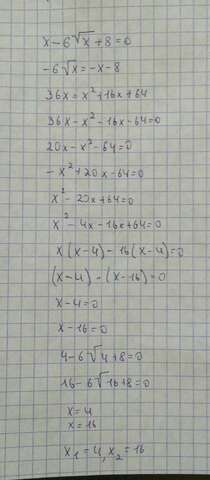 x - 6√x + 8 = 0
-6√x = -x - 8
36x = x² + 16x + 64
36x - x² - 16x - 64 = 0
20x - x² - 64 = 0
- x² + 20x - 64 = 0
x² - 20x + 64 = 0
x² - 4x - 16x + 64 = 0
x(x-4) - 16(x-4) = 0
(x-4) - (x-16) = 0
x - 4 = 0
x - 16 = 0
4 - 6√4 + 8 = 0
16 - 6√16 + 8 = 0
x = 4
x = 16
x₁ = 4, x₂ = 16